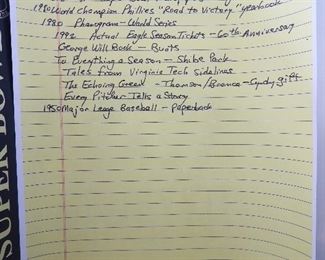 1980 World Champion Phillies "Road to Victory" yearbook
1980 Phanogram - World Series
1992 Actual Eagle Season Tickets - 60th Anniversary
George Will Book - Bunts
To Everything a Season - Shibe Park
Tales from Virginia Tech Sidelines
The Echoing Green - Thomson/Branca - Cyndy gift
Every Pitcher Tells a Story
1950 Major Leage Baseball - Paperback
SUPER BOWL